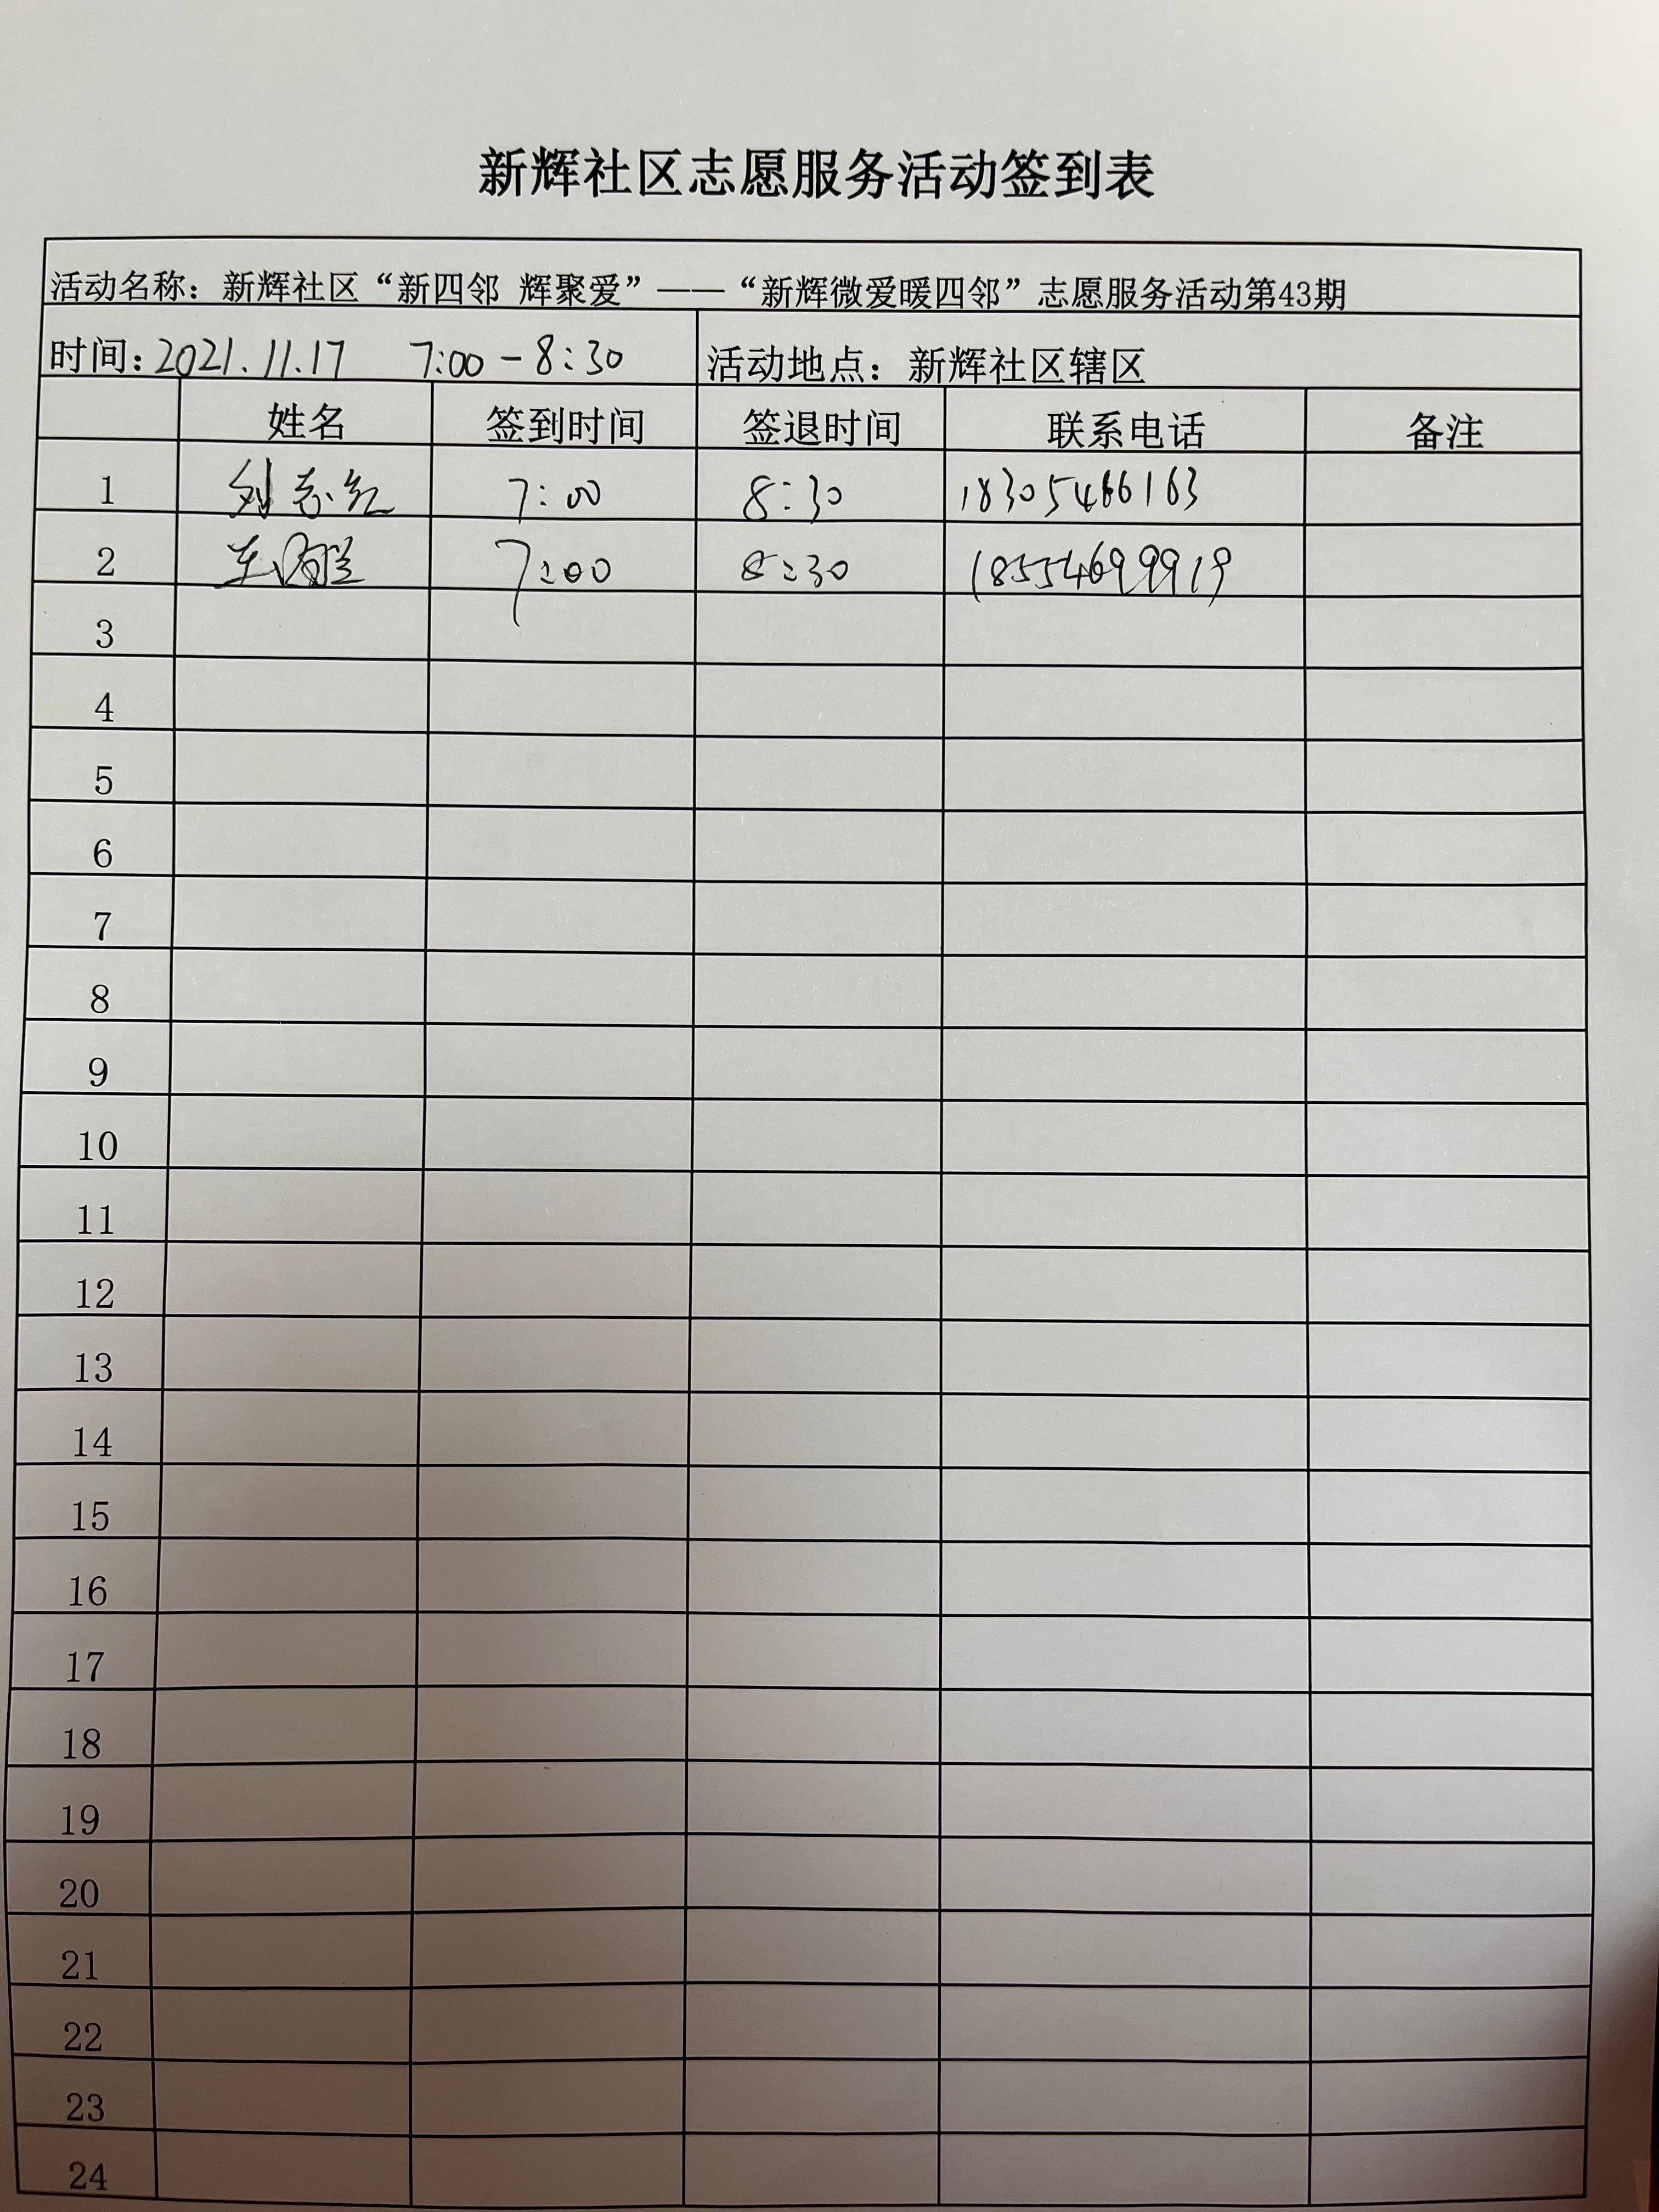 新辉社区志愿服务活动签到表
活动名称：新辉社区“新四邻 辉聚爱”——“新辉微爱暖四邻”志愿服务活动第43期
时间：2021.11.17 7:00-8:30 活动地点：新辉社区辖区
姓名 签到时间 签退时间 联系电话 备注
1 刘志红 7:00 8:30 18305466163
2 7:00 8:30 18554699919
3
4
5
6
7
8
9
10
11
12
13
14
15
16
17
18
19
20
21
22
23
24